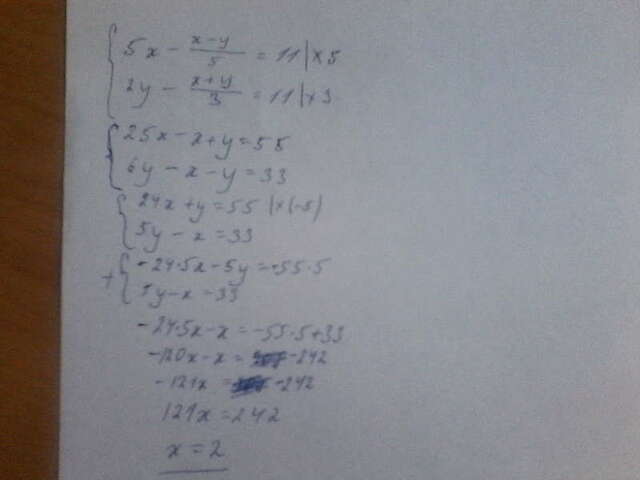 5x - (x-y)/5 = 11 |×5
2y - (x+y)/3 = 11 |×3
25x - x + y = 55
6y - x - y = 33
24x + y = 55 |×(-5)
5y - x = 33
+ -24·5x - 5y = -55·5
5y - x = 33
-24·5x - x = -55·5 + 33
-120x - x = -242
-121x = -242
121x = 242
x = 2